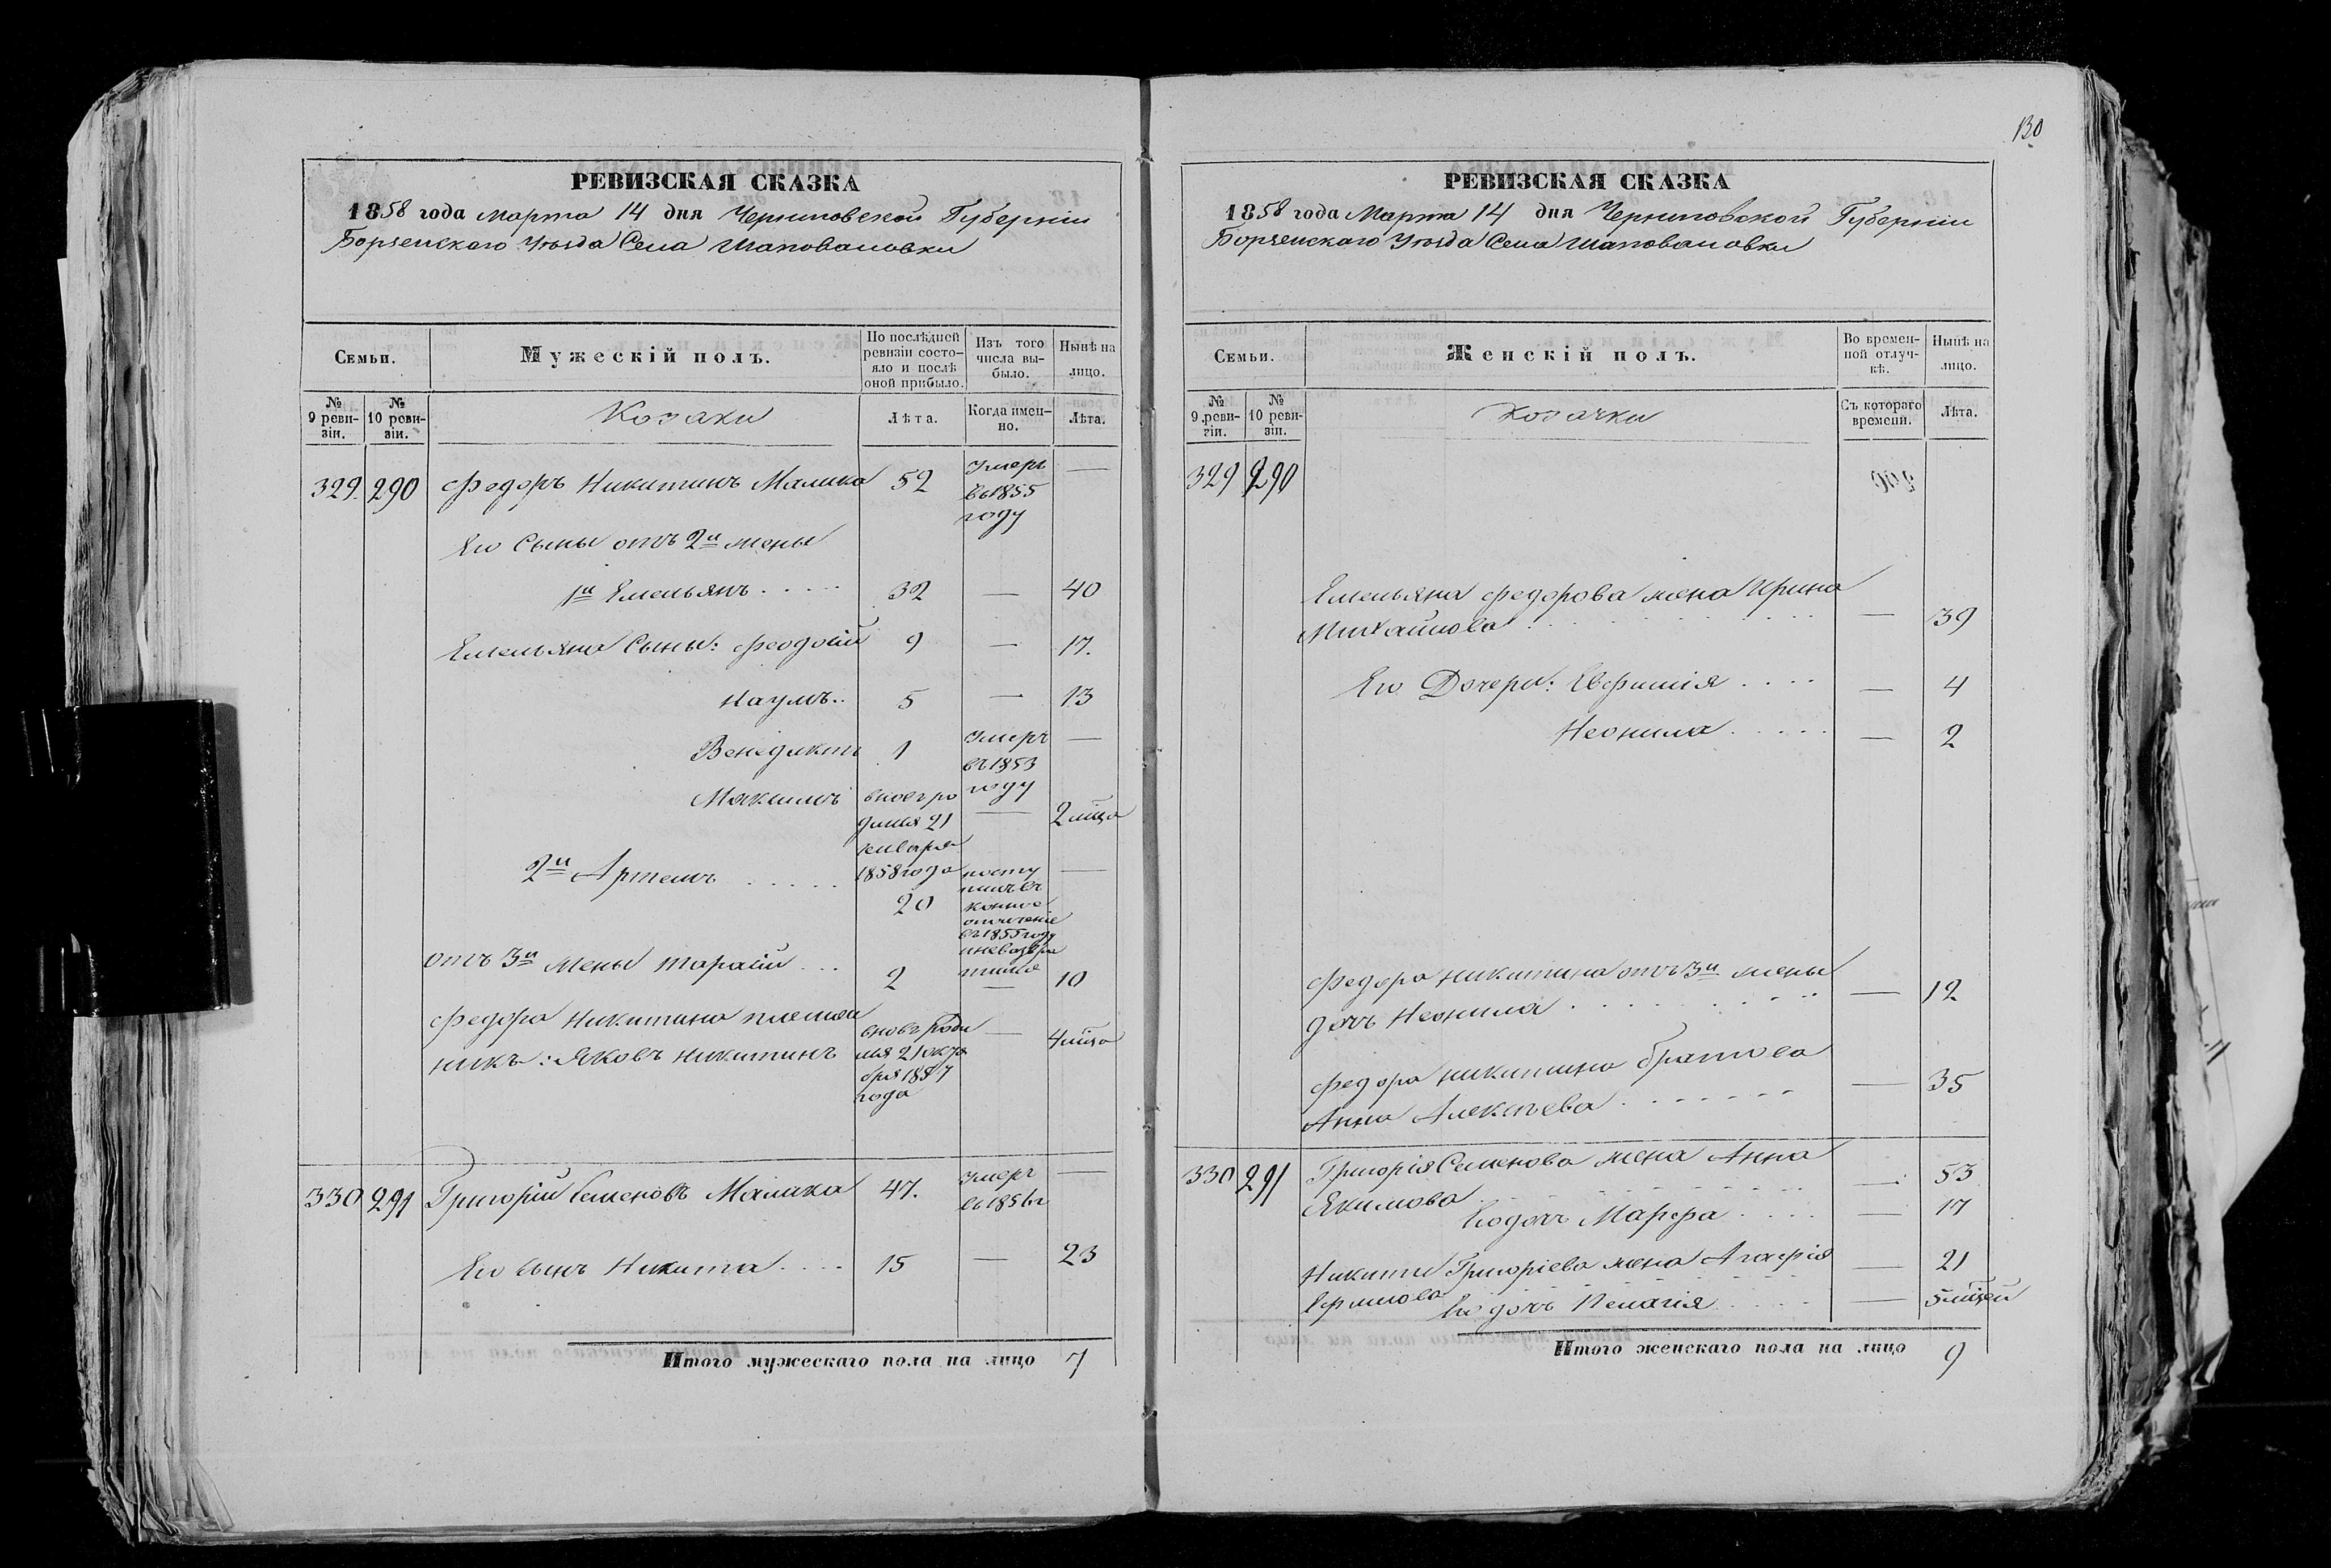 130
РЕВИЗСКАЯ СКАЗКА
1858 года Марта 14 дня Черниговской Губерніи
Борзенскаго Уѣзда Села Шаповаловки
Семьи.
Мужескій полъ.
По послѣдней ревизіи состояло и послѣ оной прибыло.
Изъ того числа выбыло.
Нынѣ на лицо.
№ 9 ревизіи.
№ 10 ревизіи.
Козаки
Лѣта.
Когда именно.
Лѣта.
329. 290 Федоръ Никитинъ Малика 52 Умеръ въ 1855 году —
Его Сыны отъ 2й жены
1й Емельянъ . . . . . 32 — 40
Емельяна Сыны: Феодосій 9 — 17.
Наумъ.. 5 — 13
Венедиктъ 1 Умеръ въ 1853 году —
вновь ро
21
января
1858 года
— 2 мѣца
2й Артемъ . . . . . 20
посту
пилъ въ
конное
ополченіе
въ 1855 году
—
отъ 3й Жены Тарасій . . . 2 — 10
Федора Никитина племян
никъ: Яковъ Никитинъ
вновь роди
лся 21 октя
бря 1857
года
— 4 мѣца
330 291 Григорій Семеновъ Малика 47. Умеръ —
Его сынъ Никита . . . . 15 — 23
Итого мужескаго пола на лицо 7
РЕВИЗСКАЯ СКАЗКА
1858 года Марта 14 дня Черниговской Губерніи
Борзенскаго Уѣзда Села Шаповаловки
Семьи.
Женскій полъ.
Во временной отлучкѣ.
Нынѣ на лицо.
№ 9 ревизіи.
№ 10 ревизіи.
Козачки
Съ котораго времени.
Лѣта.
329 290
Емельяна Федорова жена Ирина
Михайлова . . . . . — 39
Его Дочери: Евфимія . . . . — 4
Неонила . . . . . — 2
Федора Никитина отъ 3й жены
дочь Неонила . . . . . — 12
Федора Никитина братова
Анна Алексѣева . . . . . — 35
330 291 Григорія Семенова жена Анна
Якимова — 53
Его дочь Марфа . . . . — 17
Никиты Григоріева жена Агафія — 21
Ефимова
Его дочь Пелагія . . . . — 5 мѣцей
Итого женскаго пола на лицо 9